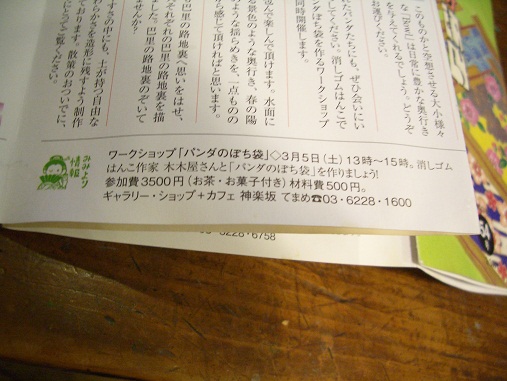 このものかと空想させる大小様々
な「Bowl」は日常に豊かな奥行き
を与えてくれるでしょう。どうぞ
お運びください。
たパンダたちにも、ぜひ会いにい
してください。消しゴムはんこで
ンダのぽち袋を作るワークショップ
同時開催します。
並んで楽しんで頂けます。水面に
る景色のような奥行き、春の陽
のような揺らめきを、一点ものの
ら感じて頂ければと思います。
巴里の路地裏へ思いをはせ、
それぞれの巴里の路地裏を描
ました。巴里の路地裏のぞいて
ませんか?
すさの中にも、土が持つ自由な
わらかさを造形に残すよう制作
ております。散策のおついでに、
にってご覧ください。
みみより
情報
ワークショップ「パンダのぽち袋」◇3月5日(土)13時〜15時。消しゴム
はんこ作家 木木屋さんと「パンダのぽち袋」を作りましょう!
参加費3500円(お茶・お菓子付き)材料費500円。
ギャラリー・ショップ+カフェ 神楽坂 てまめ☎03・6228・1600
6228・6758
54